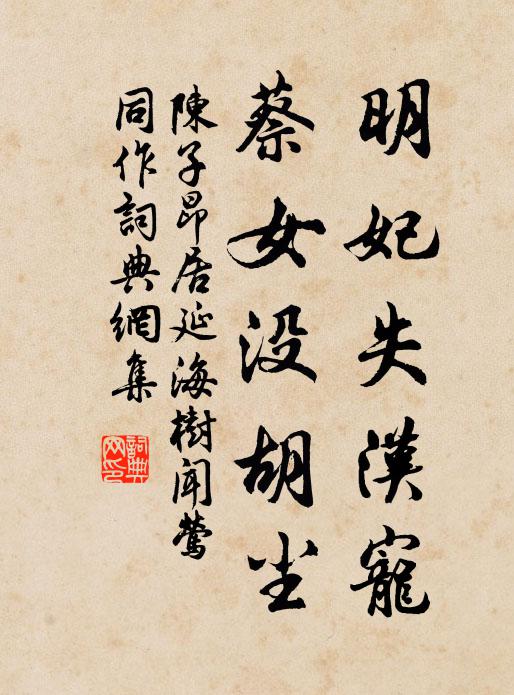 明妃失漢寵
蔡女没胡尘
陳子昂居延海樹闻鶯
同作詞典網集
詞典
网印